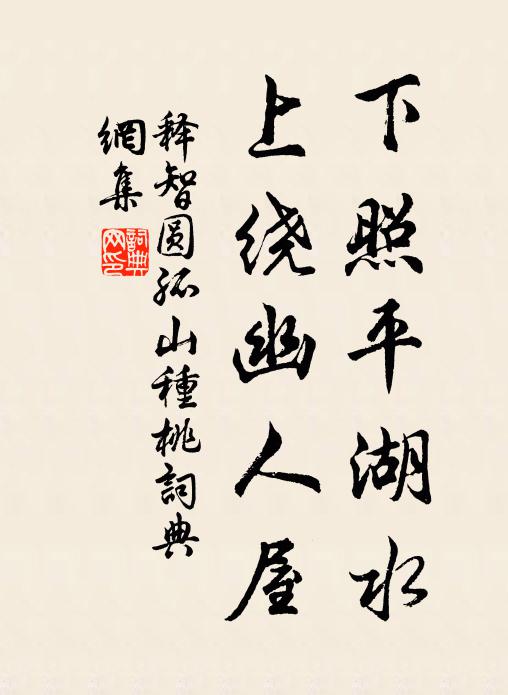 下照平湖水
上绕幽人屋
释智圆孤山種桃詞典
網集
詞典
网印